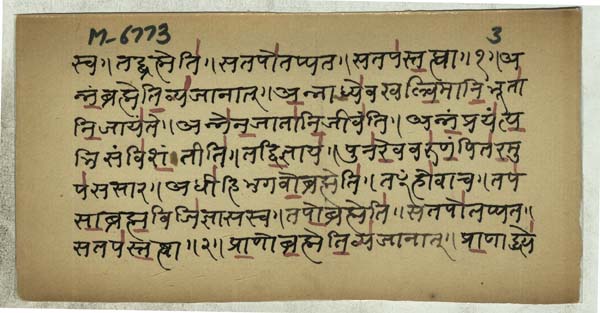 M-6773
3
स्व॥तद्ब्रह्मेति॥सतपोतप्यत॥सतपस्तप्त्वा॥१॥अ
न्नंब्रह्मेतिव्यजानात्॥अन्नाध्येवखल्विमानिभूता
निजायंते॥अन्नेनजातानिजीवंति॥अन्नंप्रयंत्य
भिसंविशंतीति॥तद्विज्ञाय॥पुनरेववरुणंपितरमु
पससार॥अधीहिभगवोब्रह्मेति॥तꣳहोवाच॥तप
साब्रह्मविजिज्ञासस्व॥तपोब्रह्मेति॥सतपोतप्यत॥
सतपस्तप्त्वा॥२॥प्राणोब्रह्मेतिव्यजानात्॥प्राणाद्ध्ये